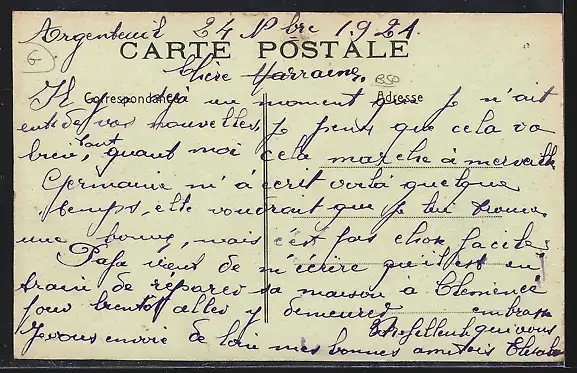 Argenteuil 24 Nbre 1921.
CARTE POSTALE
Chère Marraine,
Correspondance Adresse
Il y a déjà un moment que je n'ait
entde vos nouvelles, je pense que cela va
bien, tant quant moi cela marche à merveille
Germaine m'a écrit voila quelque
temps, elle voudrait que je lui trouve
une bonne, mais c'est pas chose facile,
Papa vient de m'écrire qu'il est en
train de réparer sa maison à Clémence
pour bientot aller y demeurer embrasse
qui vous
Je vous envoie de loin mes bonnes amitiés